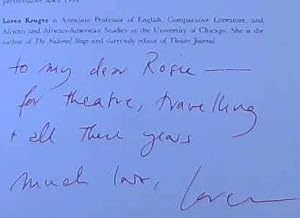 Loren Kruger is Associate Professor of English, Comparative Literature, and
African and African-American Studies at the University of Chicago. She is the
author of The National Stage and currently editor of Theatre Journal.
to my dear Rogie —
for theatre, travelling
+ all these years
much love,
Loren